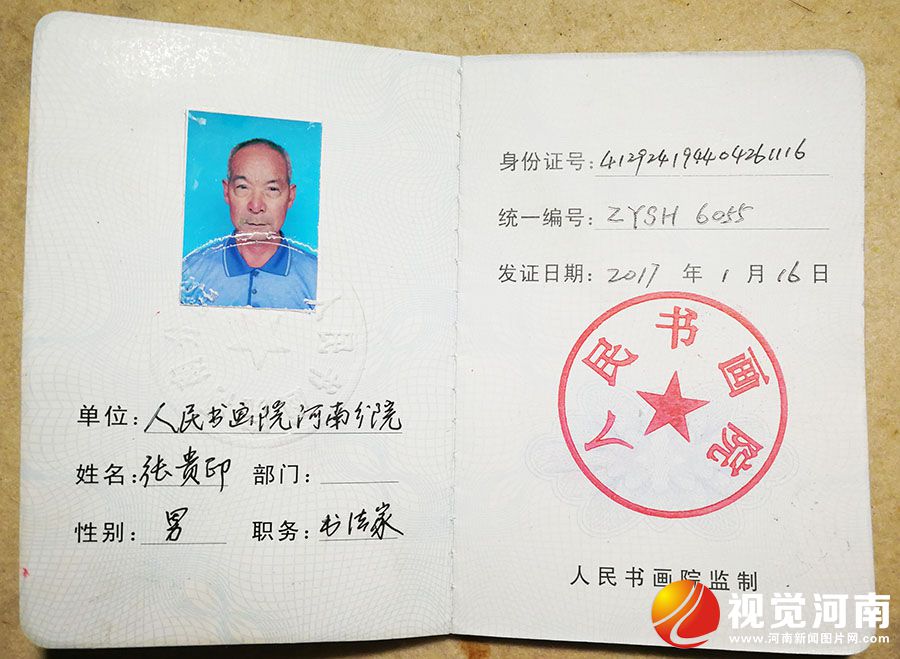 单位:人民书画院河南分院
姓名:张贵印 部门:
性别:男 职务:书法家
身份证号:412924194404261116
统一编号:ZYSH 6055
发证日期:2017年1月16日
人民书画院
人民书画院监制
视觉河南
www.河南新闻图片网.com